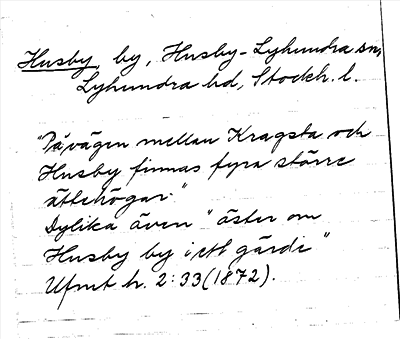 Husby, by, Husby-Lyhundra sn,
Lyhundra hd, Stockh. l.
"På vägen mellan Kragsta och
Husby finnas fyra större
ättehögar."
Dylika även "öster om
Husby by i ett gärde"
Ufmt h. 2:33 (1872).